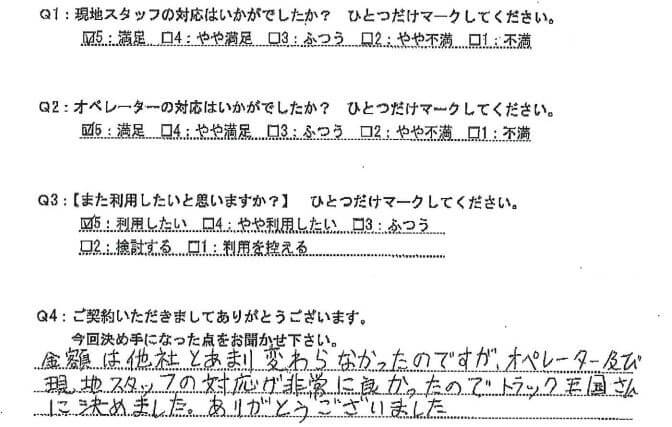 Q1：現地スタッフの対応はいかがでしたか？　ひとつだけマークしてください。
☑5：満足　☐4：やや満足　☐3：ふつう　☐2：やや不満　☐1：不満
Q2：オペレーターの対応はいかがでしたか？　ひとつだけマークしてください。
☑5：満足　☐4：やや満足　☐3：ふつう　☐2：やや不満　☐1：不満
Q3：【また利用したいと思いますか？】　ひとつだけマークしてください。
☑5：利用したい　☐4：やや利用したい　☐3：ふつう
☐2：検討する　☐1：利用を控える
Q4：ご契約いただきましてありがとうございます。
今回決め手になった点をお聞かせ下さい。
金額は他社とあまり変わらなかったのですが、オペレーター及び
現地スタッフの対応が非常に良かったのでトラック王国さん
に決めました。ありがとうございました